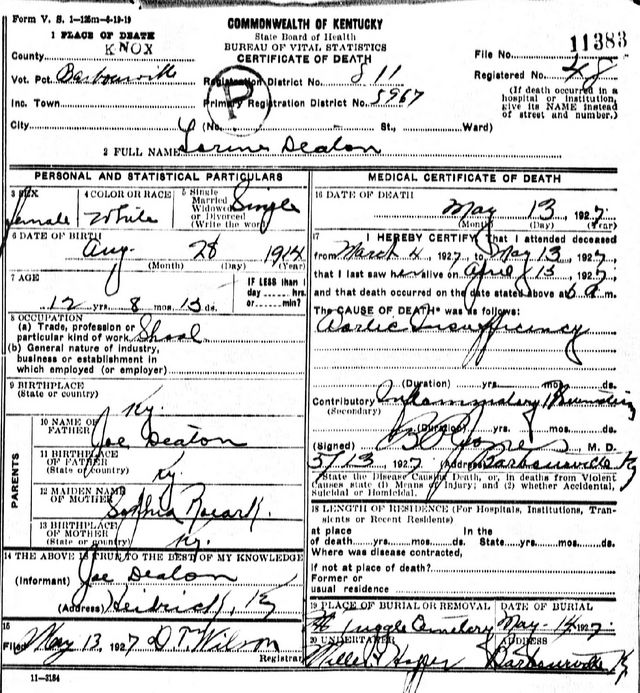 Form V. S. 1-125m-6-19-19
COMMONWEALTH OF KENTUCKY
State Board of Health
BUREAU OF VITAL STATISTICS
CERTIFICATE OF DEATH
11383
1 PLACE OF DEATH
County KNOX
File No.
Vot. Pct. Barbourville Registration District No. 811 Registered No. 48
Inc. Town Primary Registration District No. 5967
P
(If death occurred in a hospital or institution, give its NAME instead of street and number.)
City (No. St., Ward)
2 FULL NAME Deaton
PERSONAL AND STATISTICAL PARTICULARS
3 SEX female
4 COLOR OR RACE White
5 Single Married Widowed or Divorced (Write the word) Single
6 DATE OF BIRTH
Aug 28 1914
(Month) (Day) (Year)
7 AGE
12 yrs. 8 mos. 15 ds.
IF LESS than 1 day hrs. or min?
8 OCCUPATION
(a) Trade, profession or particular kind of work School
(b) General nature of industry, business or establishment in which employed (or employer)
9 BIRTHPLACE
(State or country) Ky.
PARENTS
10 NAME OF FATHER Joe Deaton
11 BIRTHPLACE OF FATHER (State or country) Ky.
12 MAIDEN NAME OF MOTHER Sophia
13 BIRTHPLACE OF MOTHER (State or country) Ky.
14 THE ABOVE IS TRUE TO THE BEST OF MY KNOWLEDGE
(Informant) Joe Deaton
(Address) Heidrick, Ky
15
Filed May 13, 1927 D T Wilson
Registrar
11-3184
MEDICAL CERTIFICATE OF DEATH
16 DATE OF DEATH
May 13, 1927
(Month) (Day) (Year)
17 I HEREBY CERTIFY, That I attended deceased
from March 4, 1927, to May 13, 1927
that I last saw her alive on April 15, 1927,
and that death occurred on the date stated above at 6 a m.
The CAUSE OF DEATH* was as follows:
Aortic Insufficiency
(Duration) yrs. mos. ds.
Contributory Inflammatory
(Secondary)
(Duration) yrs. mos. ds.
(Signed) Jones, M. D.
5/13, 1927 (Address) Barbourville Ky
*State the Disease Causing Death, or, in deaths from Violent Causes state (1) Means of Injury; and (2) whether Accidental, Suicidal or Homicidal.
18 LENGTH OF RESIDENCE (For Hospitals, Institutions, Transients or Recent Residents)
at place of death yrs. mos. ds. In the State yrs. mos. ds.
Where was disease contracted,
if not at place of death?
Former or usual residence
19 PLACE OF BURIAL OR REMOVAL DATE OF BURIAL
Tuggle Cemetery May-14 1927
20 UNDERTAKER ADDRESS
Hopper Barbourville Ky